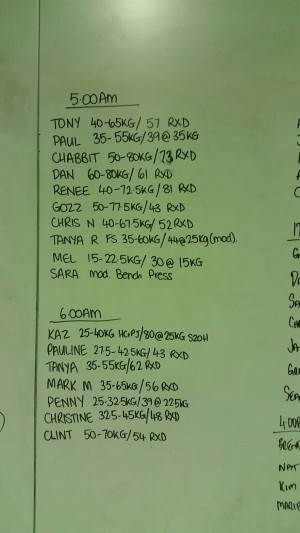 5:00am
TONY 40-65KG/ 57 RXD
PAUL 35-55KG/39@35KG
CHABBIT 50-80KG/73 RXD
DAN 60-80KG/ 61 RXD
RENEE 40-72.5KG/81 RXD
GOZZ 50-77.5KG/43 RXD
CHRIS N 40-67.5KG/ 52 RXD
TANYA R FS 35-60KG/44@25kg(mod).
MEL 15-22.5KG/ 30@15KG
SARA mod. Bench Press
6:00AM
KAZ 25-40KG /80@25KG
PAULINE 27.5-42.5KG/ 43 RXD
TANYA 35-55KG/62 RXD
MARK M 35-65KG/56 RXD
PENNY 25-32.5KG/39@22.5KG
CHRISTINE 32.5-45KG/48 RXD
CLINT 50-70KG/54 RXD
KIM